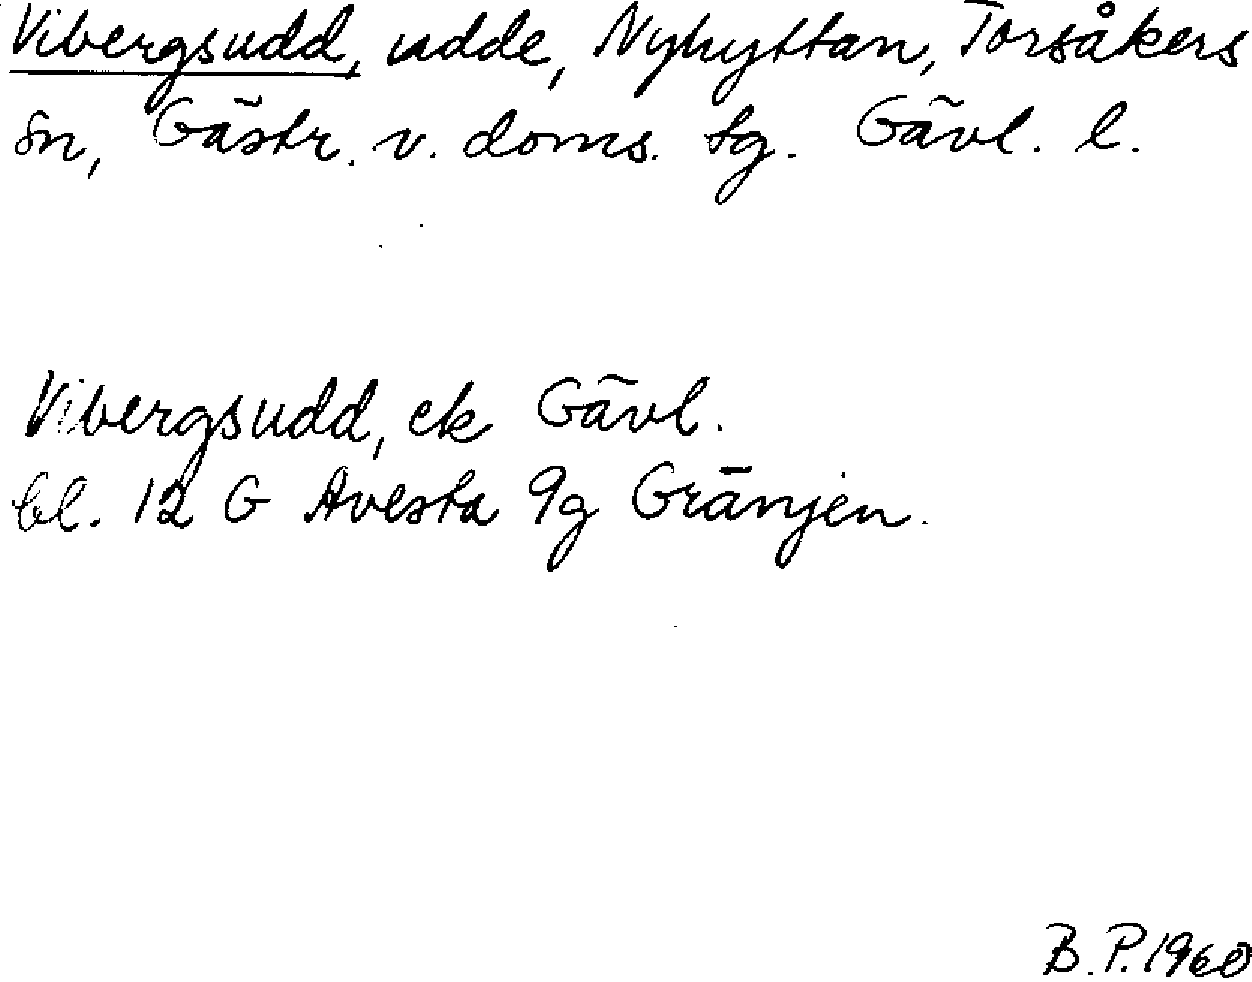 Vibergsudd, udde, Nyhyttan, Torsåkers
sn, Gästr. v. doms. tg. Gävl. l.
Vibergsudd, ek Gävl.
bl. 12 G Avesta 9g Gränjen.
B. P. 1960